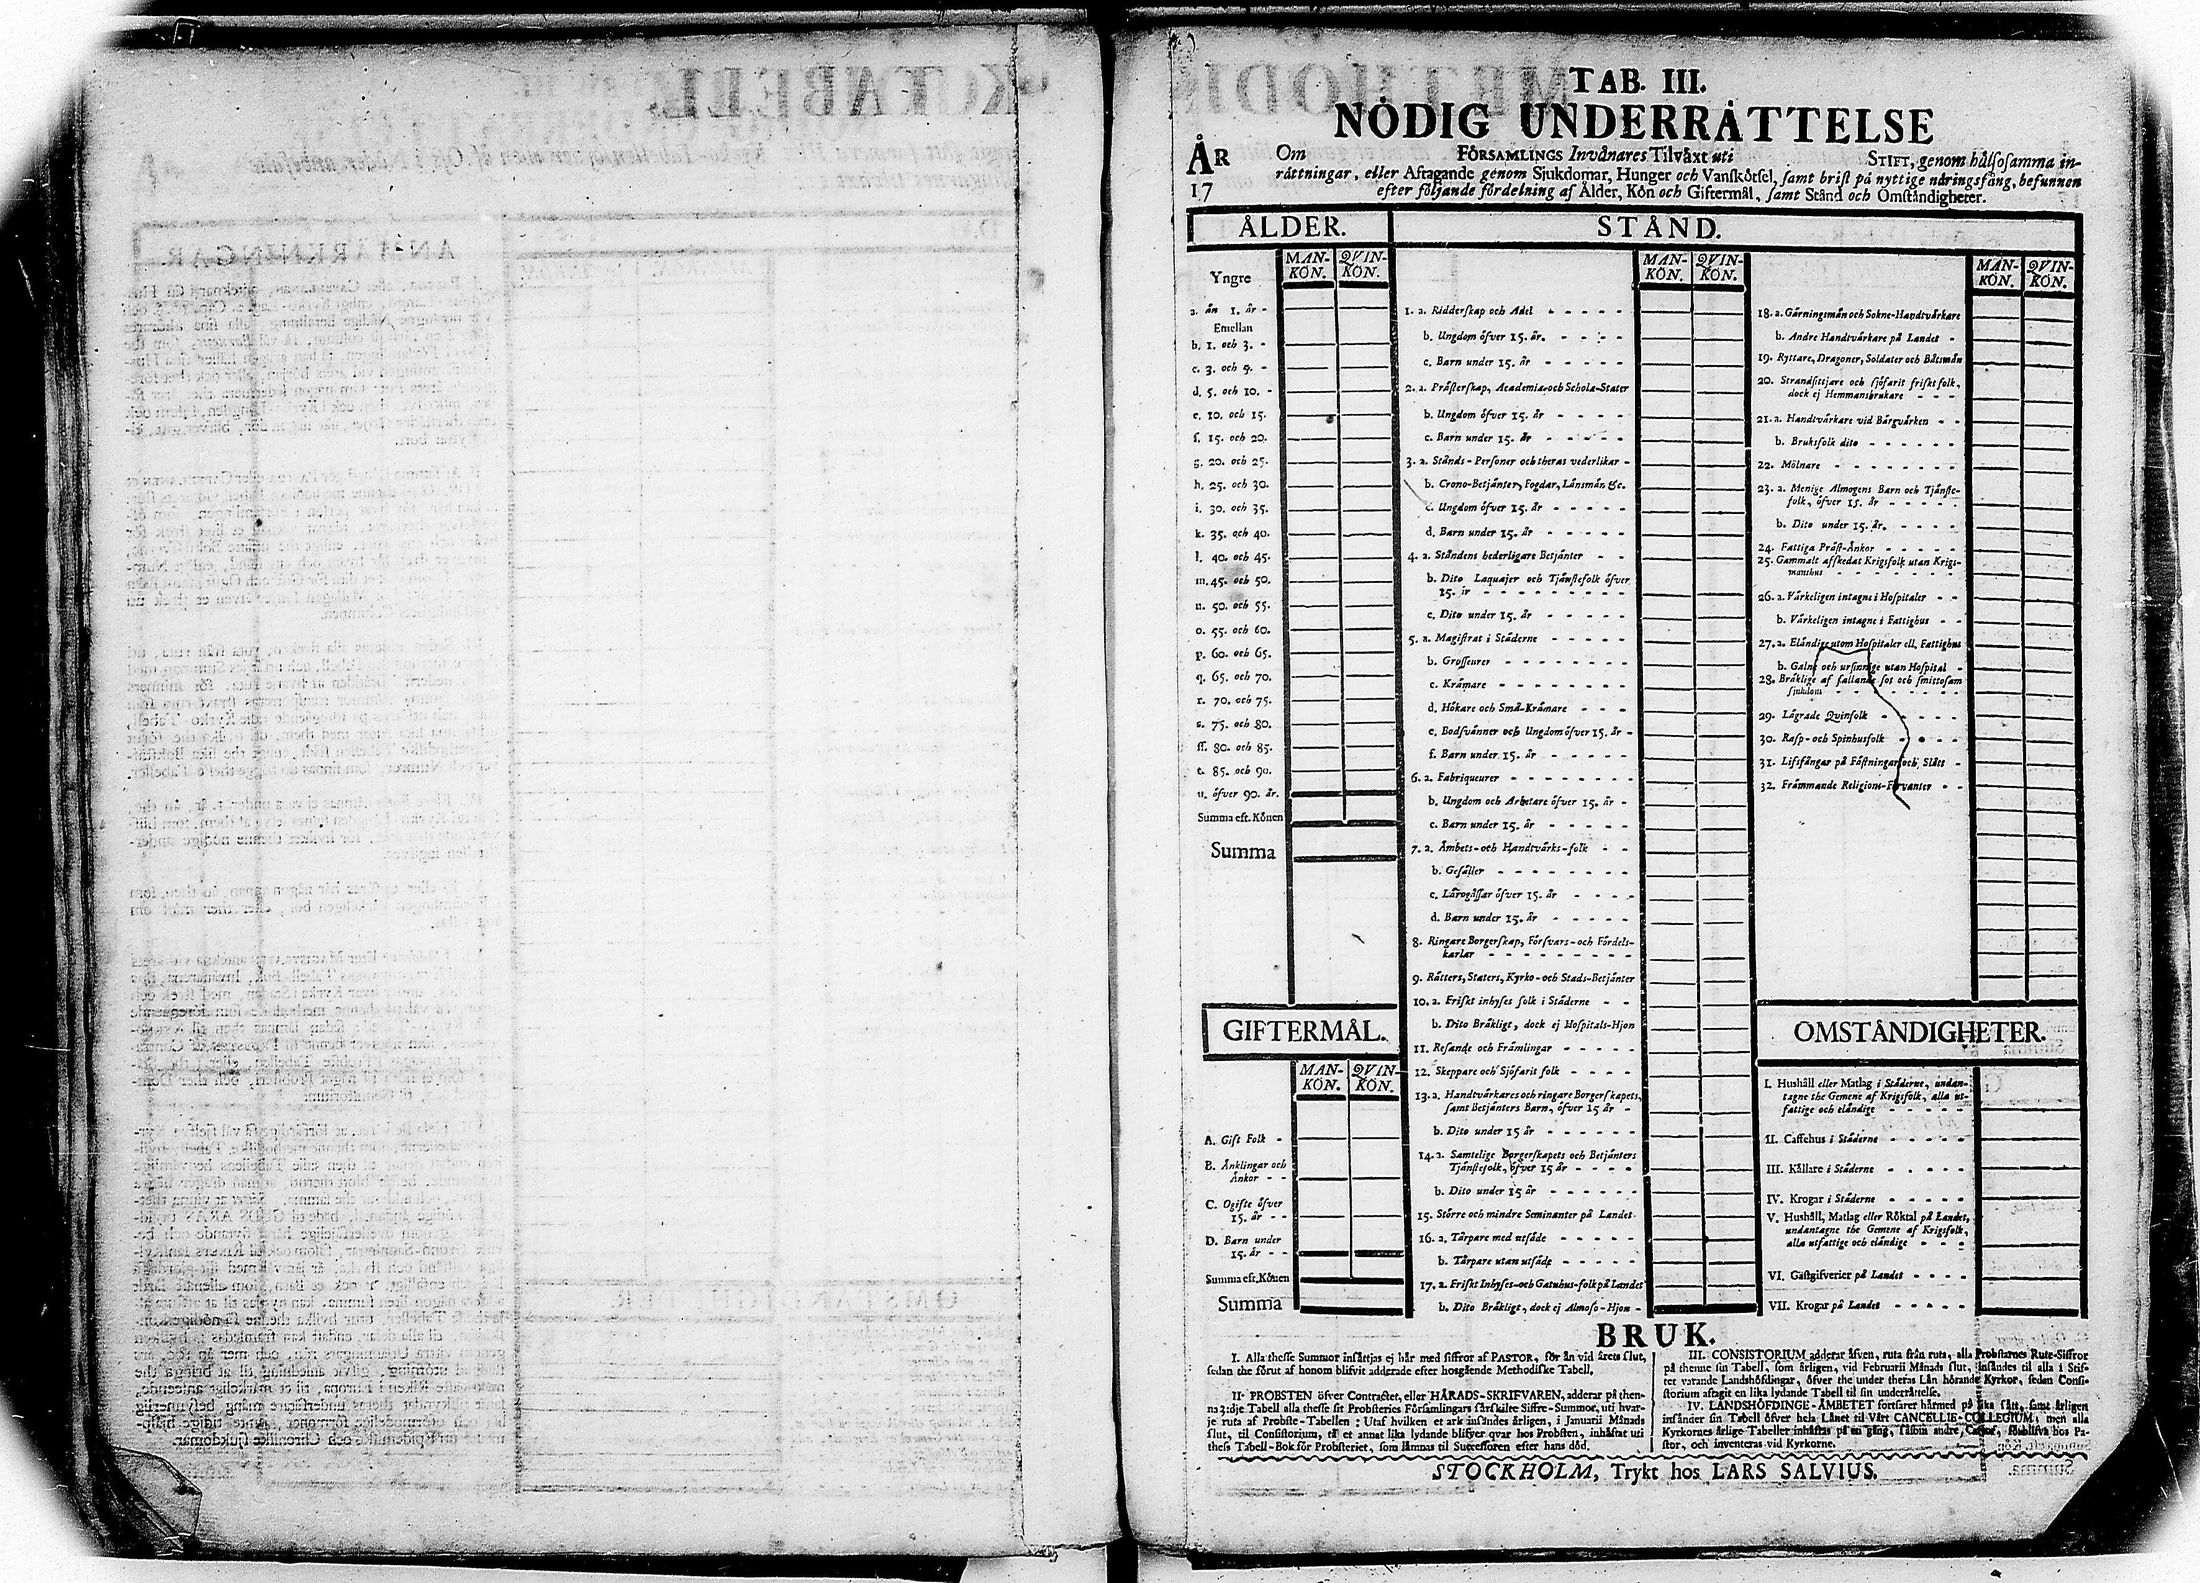 TAB. III.
NÖDIG UNDERRÄTTELSE
ÅR
17
Om FÖRSAMLINGS Invånares Tilväxt uti STIFT, genom hälsosamma in-
rättningar, eller Aftagande genom Sjukdomar, Hunger och Vanskötsel, samt brist på nyttige näringsfång, befunnen
efter följande fördelning af Ålder, Kön och Giftermål, samt Stånd och Omständigheter.
ÅLDER.
MAN-KÖN. QVIN-KÖN.
Yngre
a. än 1. år -
Emellan
b. 1. och 3. -
c. 3. och 9. -
d. 5. och 10. -
e. 10. och 15.
f. 15. och 20.
g. 20. och 25.
h. 25. och 30.
i. 30. och 35.
k. 35. och 40.
l. 40. och 45.
m. 45. och 50.
n. 50. och 55.
o. 55. och 60.
p. 60. och 65.
q. 65. och 70.
r. 70. och 75.
s. 75. och 80.
ff. 80. och 85.
t. 85. och 90.
u. öfver 90. år.
Summa eft. Könen
Summa
GIFTERMÅL.
MAN-KÖN. QVIN-KÖN.
A. Gift Folk -
B. Änklingar och
Änkor - -
C. Ogifte öfver
15. år - -
D. Barn under
15. år - -
Summa eft. Könen
Summa
STÅND.
MAN-KÖN. QVIN-KÖN.
1. a. Ridderskap och Adel - - - - -
b. Ungdom öfver 15. år. - - - -
c. Barn under 15. år - - - - -
2. a. Prästerskap, Academiæ-och Scholæ-Stater
b. Ungdom öfver 15. år - - - -
c. Barn under 15. år - - - - -
3. a. Stånds-Personer och theras vederlikar -
b. Crono-Betjänter, Fogdar, Länsmän &c.
c. Ungdom öfver 15. år - - - - -
d. Barn under 15. år - - - - -
4. a. Ståndens hederligare Betjänter - -
b. Dito Laquajer och Tjänstefolk öfver
15. år - - - - - - - - -
c. Dito under 15. år - - - - -
5. a. Magistrat i Städerne - - - - -
b. Grosseurer - - - - - - - -
c. Krämare - - - - - - - -
d. Hökare och Små-Krämare - - -
e. Bodsvänner och Ungdom öfver 15. år -
f. Barn under 15. år - - - - -
6. a. Fabriqueurer - - - - - - - -
b. Ungdom och Arbetare öfver 15. år -
c. Barn under 15. år - - - - -
7. a. Ämbets-och Handtvärks-folk - -
b. Gesäller - - - - - - - -
c. Lärogåssar öfver 15. år - - - -
d. Barn under 15. år - - - - -
8. Ringare Borgerskap, Försvars-och Fördels-
karlar - - - - - - - - -
9. Rätters, Staters, Kyrko-och Stads-Betjänter
10. a. Friskt inhyses folk i Städerne - -
b. Dito Bräkligt, dock ej Hospitals-Hjon
11. Resande och Främlingar - - - - -
12. Skeppare och Sjöfarit folk - - - -
13. a. Handtvärkares och ringare Borgerskapets,
samt Betjänters Barn, öfver 15 år -
b. Dito under 15 år - - - - - -
14. a. Samtelige Borgerskapets och Betjänters
Tjänstefolk, öfver 15 år - - - -
b. Dito under 15 år - - - - - -
15. Större och mindre Seminanter på Landet
16. a. Tårpare med utsäde - - - - -
b. Tårpare utan utsäde - - - - -
17. a. Friskt Inhyses-och Gatuhus-folk på Landet
b. Dito Bräkligt, dock ej Almoso-Hjon -
MAN-KÖN. QVIN-KÖN.
18. a. Gärningsmän och Sokne-Handtvärkare
b. Andre Handtvärkare på Landet -
19. Ryttare, Dragoner, Soldater och Båtsmän
20. Strandsittjare och sjöfarit friskt folk,
dock ej Hemmansbrukare - - -
21. a. Handtvärkare vid Bärgvärken - -
b. Bruksfolk dito - - - - - -
22. Mölnare - - - - - - - -
23. a. Menige Almogens Barn och Tjänste-
folk, öfver 15. år - - - - - -
b. Dito under 15. år. - - - - -
24. Fattiga Präst-Änkor - - - - -
25. Gammalt afskedat Krigsfolk utan Krigs-
manshus - - - - - - - - -
26. a. Värkeligen intagne i Hospitaler - -
b. Värkeligen intagne i Fattighus - -
27. a. Eländige utom Hospitaler ell. Fattighus
b. Galne och ursinnige utan Hospital -
28. Bräklige af fallande sot och smittosam
sjukdom - - - - - - - - -
29. Lägrade Qvinfolk - - - - - -
30. Rasp-och Spinhusfolk - - - - -
31. Lifsfångar på Fästningar och Slått - -
32. Främmande Religions-Förvanter - -
OMSTÄNDIGHETER.
I. Hushåll eller Matlag i Städerne, undan-
tagne the Gemene af Krigsfolk, alla ut-
fattige och eländige - - - - -
II. Caffehus i Städerne - - - - -
III. Källare i Städerne - - - - -
IV. Krogar i Städerne - - - - -
V. Hushåll, Matlag eller Röktal på Landet,
undantagne the Gemene af Krigsfolk,
alla utfattige och eländige - - - -
VI. Gästgifverier på Landet - - - -
VII. Krogar på Landet - - - - -
BRUK.
I. Alla thesse Summor insättjas ej här med siffror af PASTOR, för än vid årets slut,
sedan the förut af honom blifvit adderade efter hosgående Methodiske Tabell.
II. PROBSTEN öfver Contractet, eller HÄRADS-SKRIFVAREN, adderar på then-
na 3:dje Tabell alla thesse sit Probsteries Församlingars särskilte Siffre-Summor, uti hvar-
je ruta af Probste-Tabellen: Utaf hvilken et ark insändes årligen, i Januarii Månads
slut, til Consistorium, til et annat lika lydande blifver qvar hos Probsten, inhäftat uti
thess Tabell-Bok för Probsteriet, som lämnas til Successoren efter hans död.
III. CONSISTORIUM adderar äfven, ruta från ruta, alla Probstarnes Rute-Siffror
på thenne sin Tabell, som årligen, vid Februarii Månads slut, insändes til alla i Stif-
tet varande Landshöfdingar, öfver the under theras Län hörande Kyrkor, sedan Consi-
storium aftagit en lika lydande Tabell til sin underrättelse.
IV. LANDSHÖFDINGE-ÄMBETET fortfarer härmed på lika sätt, samt årligen
insänder sin Tabell öfver hela Länet til Vårt CANCELLIE-COLLEGIUM; men alla
Kyrkornes årlige Tabeller inhäftas på en gång, såsom andre Cartor, förblifva hos Pa-
stor, och inventeras vid Kyrkorne.
STOCKHOLM, Trykt hos LARS SALVIUS.